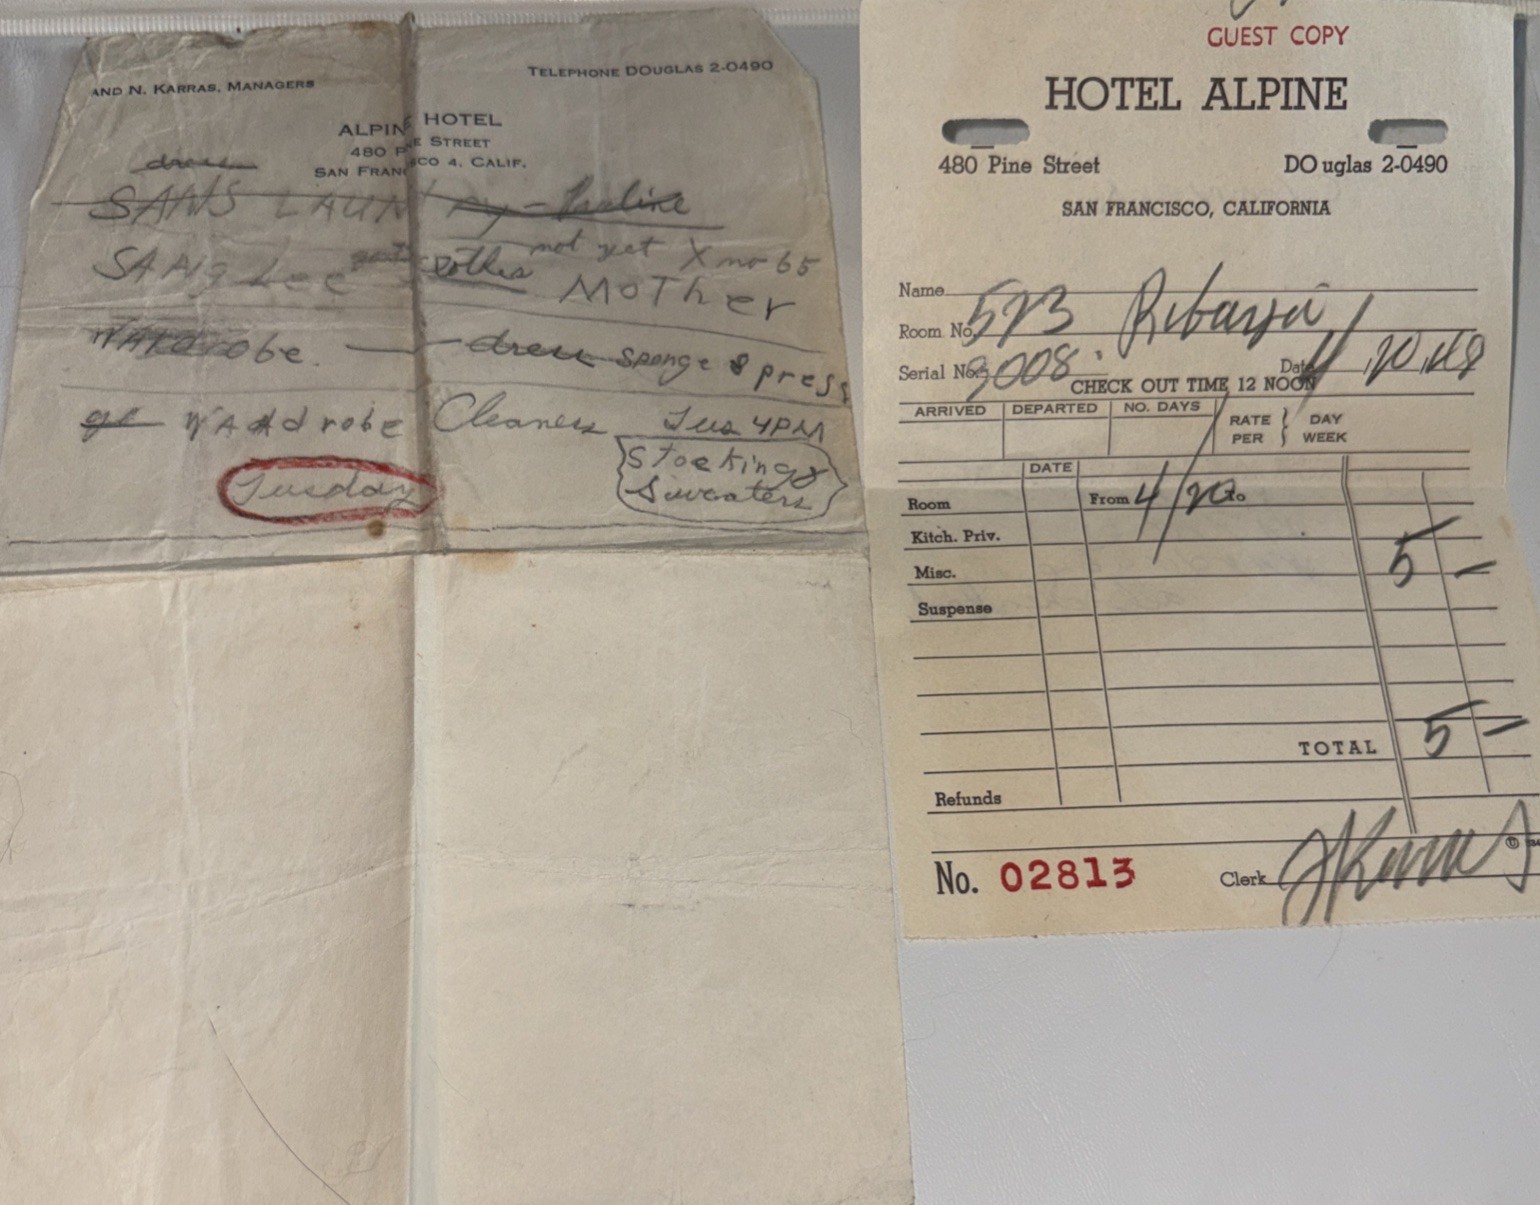 AND N. KARRAS, MANAGERS
TELEPHONE DOUGLAS 2-0490
ALPINE HOTEL
480 P E STREET
SAN FRAN CO 4, CALIF.
dress
SANG LAUNDRY - Pauline
SANG Lee clothes not yet X mo 65
MOTHER
WARDrobe. — dress sponge & press
ge WARdrobe Cleaners Tus 4PM
Tuesday
Stockings
Sweaters
GUEST COPY
HOTEL ALPINE
480 Pine Street DO uglas 2-0490
SAN FRANCISCO, CALIFORNIA
Name
Room No. 523
Serial No. 3008 Date 4/20/48
CHECK OUT TIME 12 NOON
ARRIVED DEPARTED NO. DAYS RATE PER { DAY WEEK
DATE
Room From 4/20 to
Kitch. Priv.
Misc. 5 —
Suspense
TOTAL 5 —
Refunds
No. 02813 Clerk